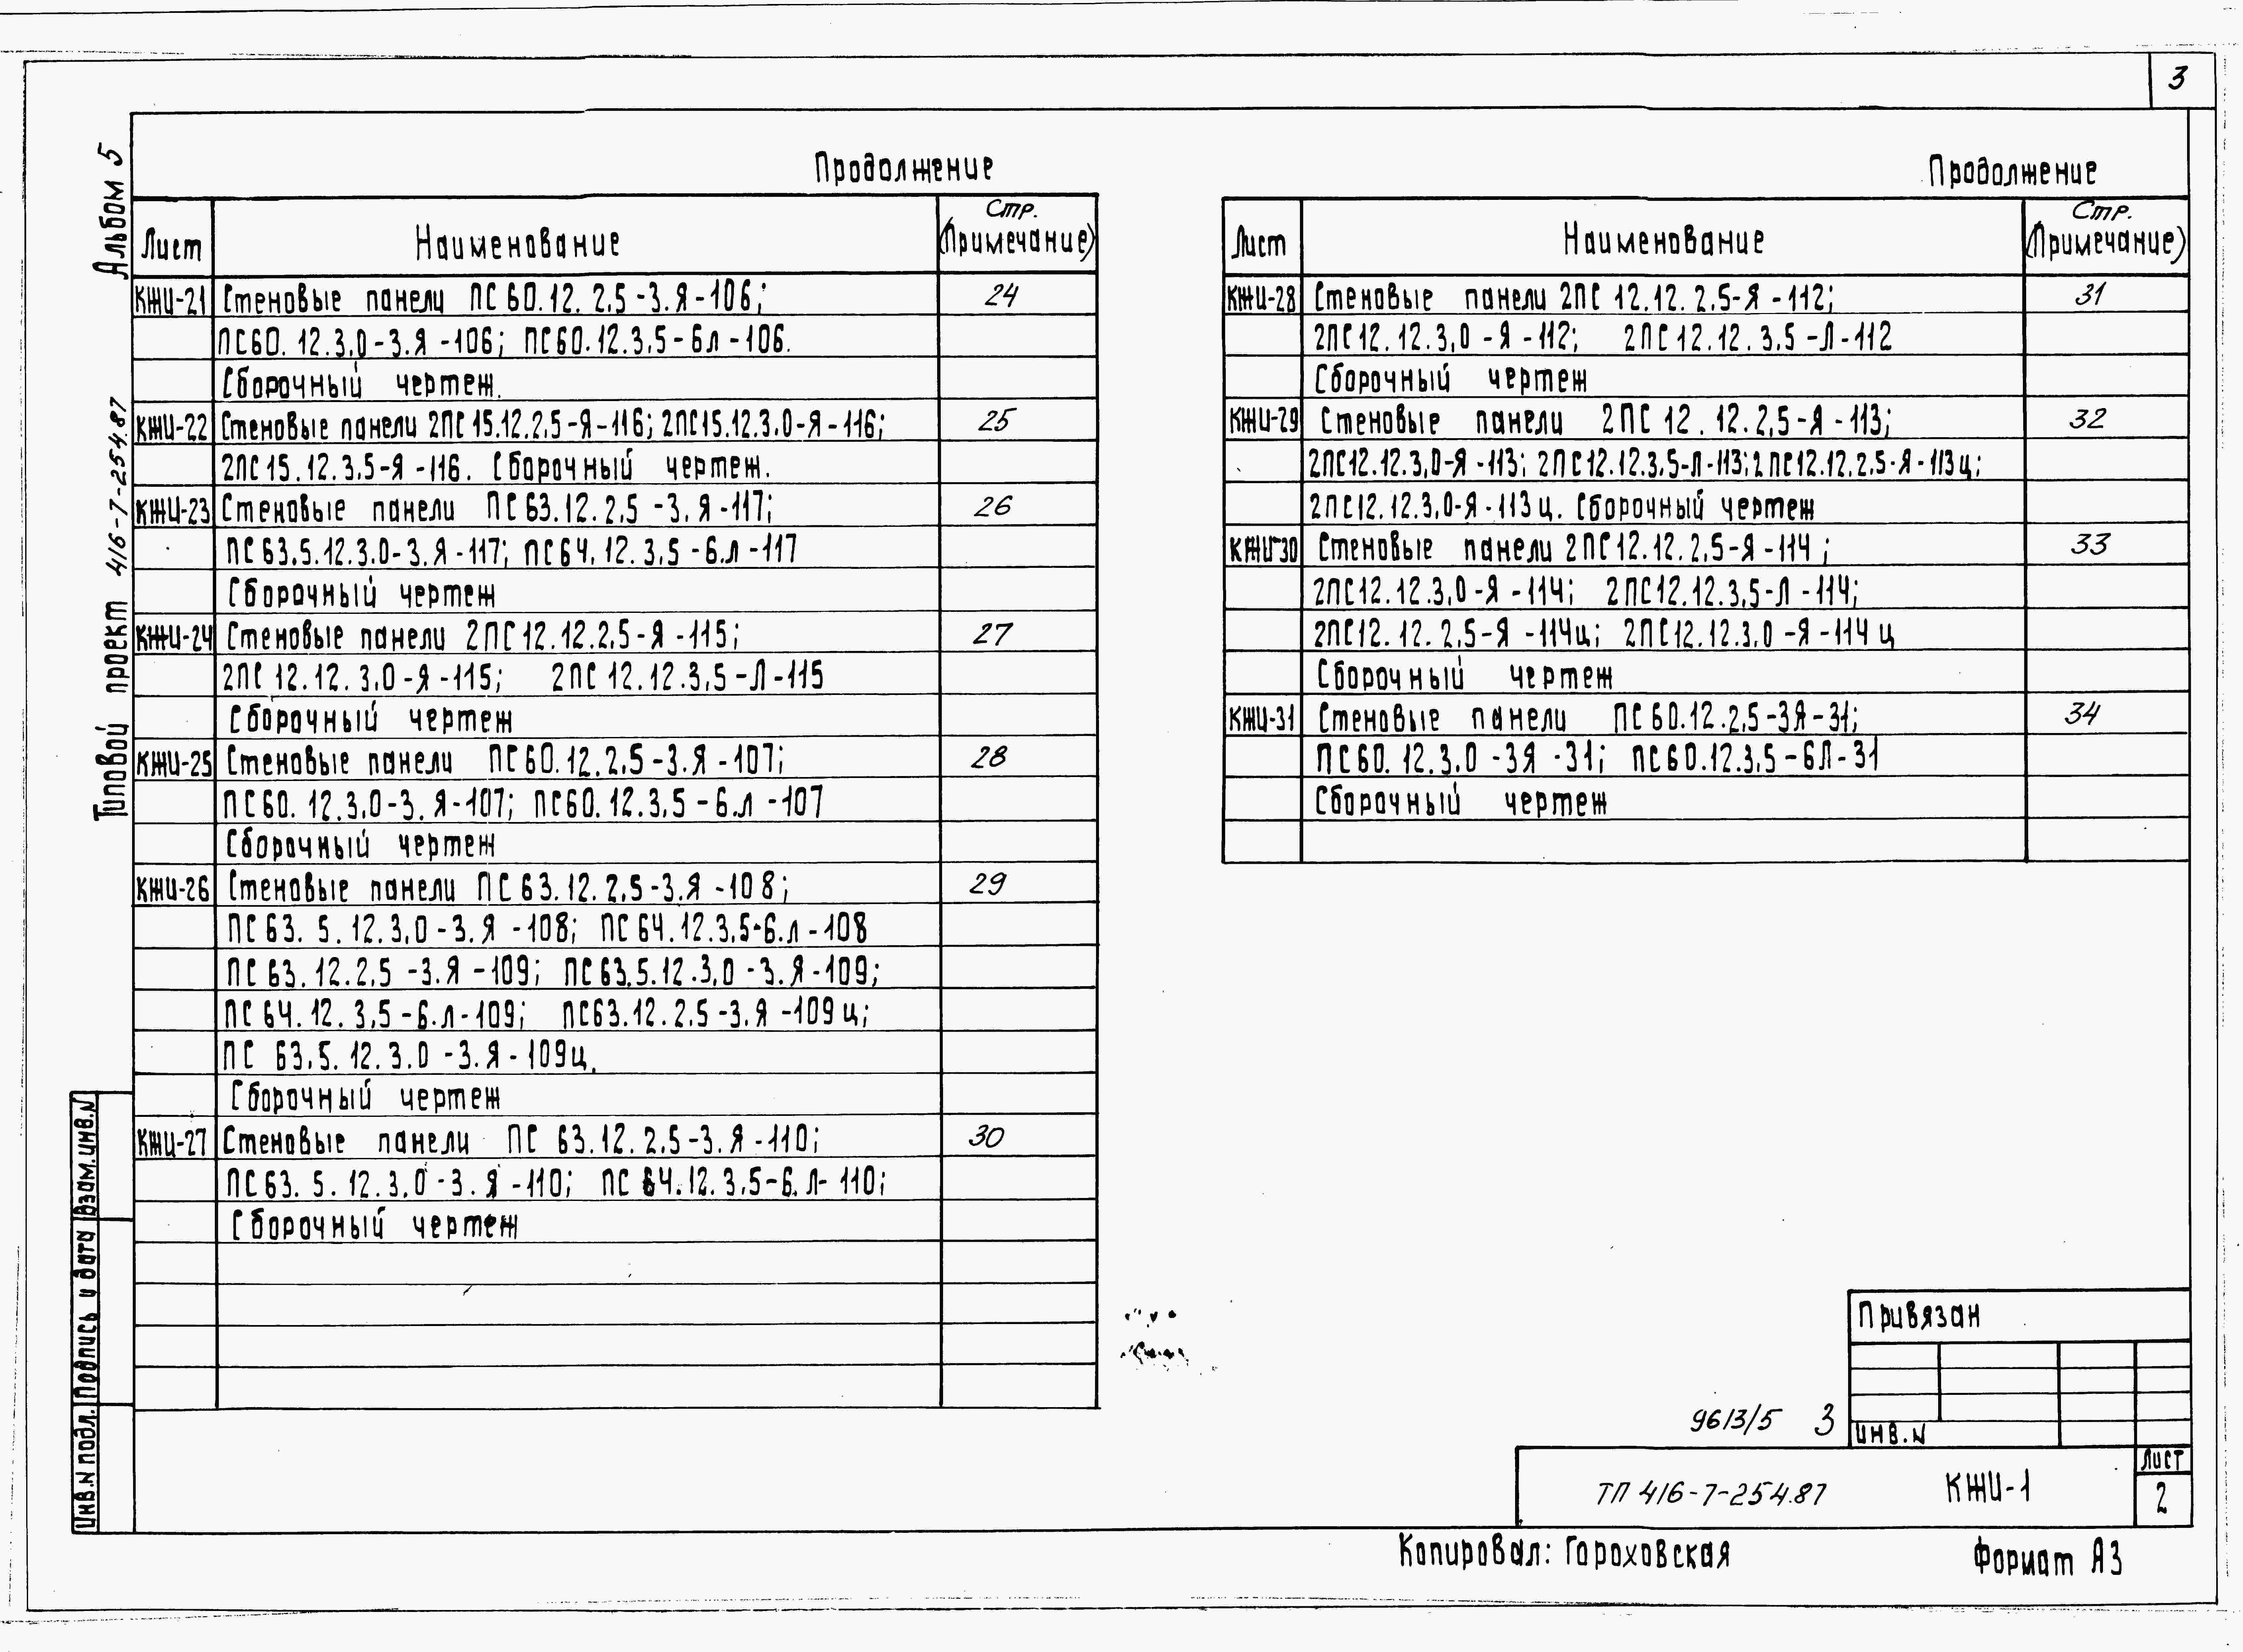 3
Альбом 5
Типовой проект 416-7-254.87
Продолжение
Лист Наименование Стр. (Примечание)
КЖИ-21 Стеновые панели ПС 60.12. 2,5-3.Я-106; 24
ПС60. 12.3,0-3.Я -106; ПС60.12.3,5-6л-106.
Сборочный чертеж.
КЖИ-22 Стеновые панели 2ПС 15.12.2,5-Я-116; 2ПС15.12.3,0-Я-116; 25
2ПС15.12.3,5-Я-116. Сборочный чертеж.
КЖИ-23 Стеновые панели ПС 63.12.2,5-3.Я-117; 26
ПС63,5.12.3.0-3.Я-117; ПС64.12.3,5-6.л-117
Сборочный чертеж
КЖИ-24 Стеновые панели 2ПС12.12.2,5-Я-115; 27
2ПС 12.12.3,0-Я-115; 2ПС 12.12.3,5-Л-115
Сборочный чертеж
КЖИ-25 Стеновые панели ПС60.12.2,5-3.Я-107; 28
ПС60. 12.3,0-3.Я-107; ПС60.12.3,5-6.л-107
Сборочный чертеж
КЖИ-26 Стеновые панели ПС 63.12.2,5-3.Я-108; 29
ПС 63. 5.12.3,0-3.Я-108; ПС 64.12.3,5-6.л-108
ПС 63.12.2,5-3.Я-109; ПС 63,5.12.3,0-3.Я-109;
ПС 64.12.3,5-6.л-109; ПС63.12.2,5-3.Я-109ц;
ПС 63,5.12.3.0-3.Я-109ц.
Сборочный чертеж
КЖИ-27 Стеновые панели ПС 63.12.2,5-3.Я-110; 30
ПС63. 5.12.3,0-3.Я-110; ПС 64.12.3,5-6.Л-110;
Сборочный чертеж
Продолжение
Лист Наименование Стр. (Примечание)
КЖИ-28 Стеновые панели 2ПС 12.12.2,5-Я-112; 31
2ПС12.12.3,0-Я-112; 2ПС12.12.3,5-Л-112
Сборочный чертеж
КЖИ-29 Стеновые панели 2ПС 12.12.2,5-Я-113; 32
2ПС12.12.3,0-Я-113; 2ПС12.12.3,5-Л-113; 2ПС12.12.2,5-Я-113ц;
2ПС12.12.3,0-Я-113ц. Сборочный чертеж
КЖИ-30 Стеновые панели 2ПС12.12.2,5-Я-114; 33
2ПС12.12.3,0-Я-114; 2ПС12.12.3,5-Л-114;
2ПС12.12.2,5-Я-114ц; 2ПС12.12.3,0-Я-114ц
Сборочный чертеж
КЖИ-31 Стеновые панели ПС 60.12.2,5-3Я-31; 34
ПС60.12.3,0-3Я-31; ПС60.12.3,5-6Л-31
Сборочный чертеж
Инв.N подл. Подпись и дата Взам.инв.N
Привязан
Инв.N
9613/5 3
ТП 416-7-254.87 КЖИ-1
Лист
2
Копировал: Гороховская Формат А3